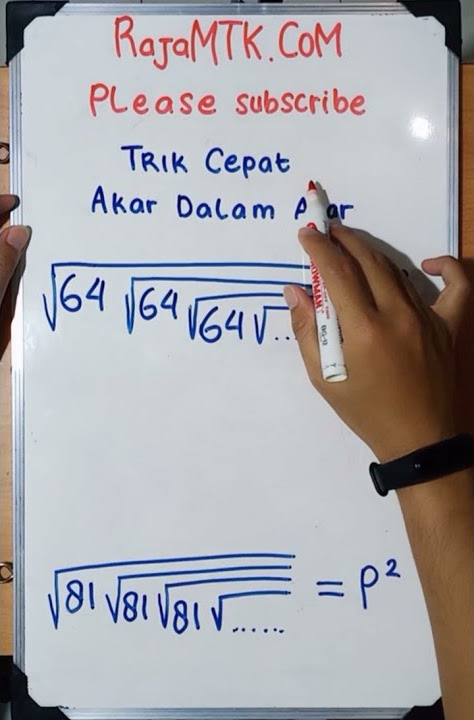 RajaMTK.COM
PLease subscribe
TRIK Cepat
AKar DaLam
√64 √64 √64 √...
√81 √81 √81 √...... = P²